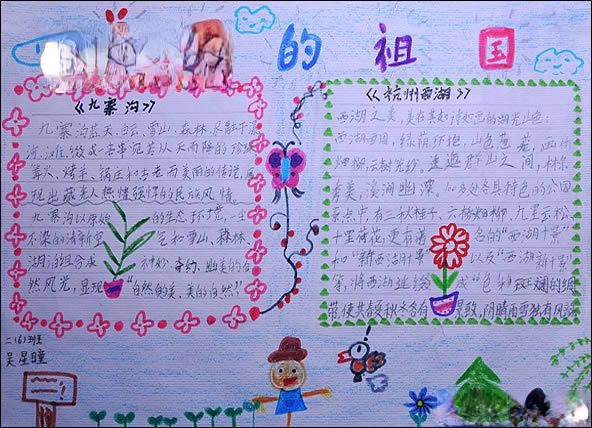 的祖国
《九寨沟》
九寨沟蓝天、白云、雪山、森林、尽融于瀑、
河、滩、
篝火、烤羊、锅庄和古老而美丽的传说,展
现出藏羌人热情强悍的民族风情。
九寨沟以原始的生态环境,一尘
不染的清新空气和雪山、森林、
湖泊组合成神妙、奇幻、幽美的自
然风光,显现“自然的美,美的自然!”
《杭州西湖》
西湖之美,美在其如诗如画的湖光山色:
西湖四周,绿荫环抱,山色葱茏,画桥
烟柳,云树笼纱。逶迤群山之间,林泉
秀美,溪涧幽深。
景点中,有三秋桂子、六桥烟柳、九里云松、
十里荷花,更有着名的“西湖十景”
和“新西湖十景”以及“西湖新十景”
等,将西湖连缀成“色彩斑斓的绸
带,使其春夏秋冬各有景致,阴晴雨雪独有风韵
二(6)班
吴星瞳